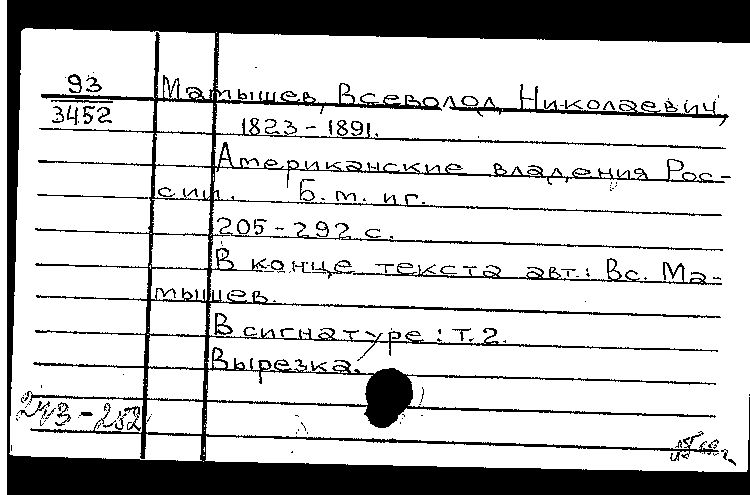 93
3452
Матышев, Всеволод Николаевич,
1823-1891.
Американские владения Рос-
сии. Б.м. и г.
205-292 с.
В конце текста авт.: Вс. Ма-
тышев.
В сигнатуре: Т.2.
Вырезка.